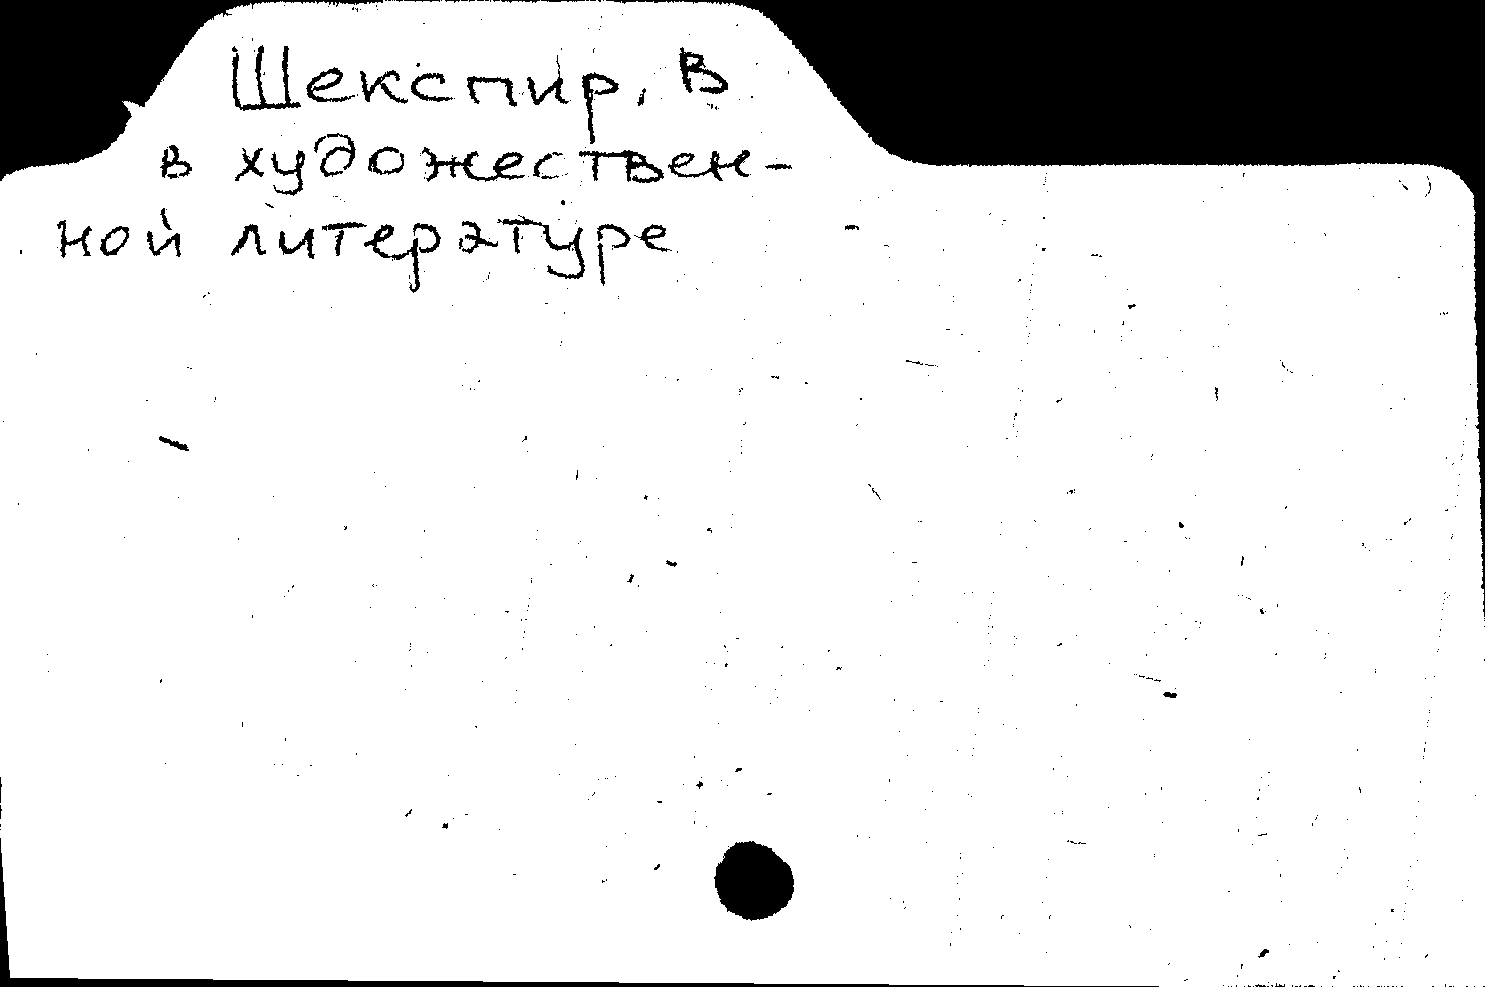 Шекспир, В
в художествен-
ной литературе